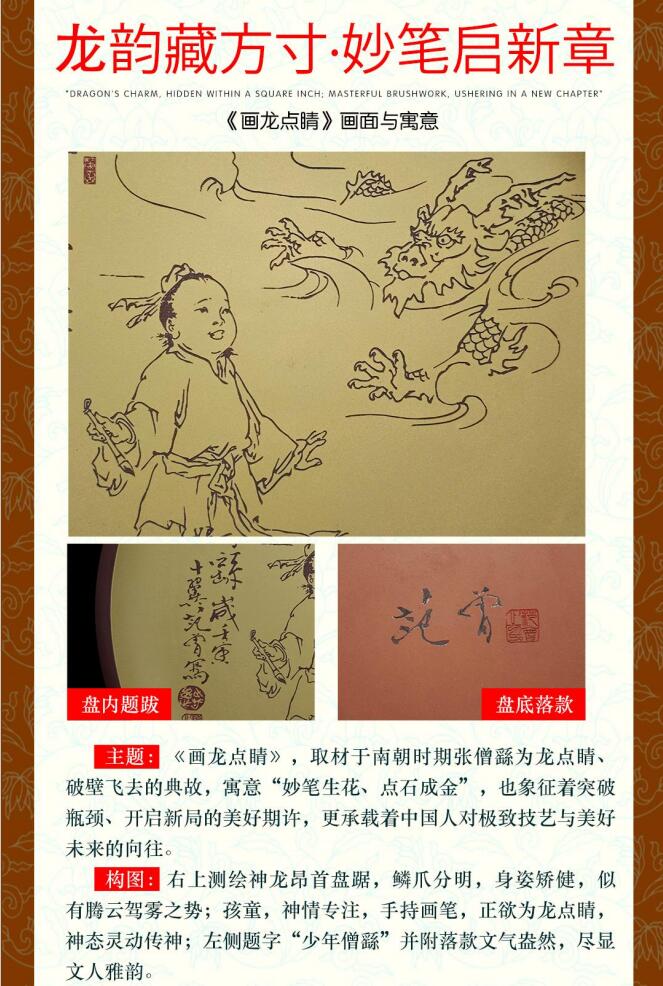 龙韵藏方寸·妙笔启新章
"DRAGON'S CHARM, HIDDEN WITHIN A SQUARE INCH; MASTERFUL BRUSHWORK, USHERING IN A NEW CHAPTER"
《画龙点睛》画面与寓意
壬寅
十翼范曾写
范曾
盘内题跋
盘底落款
主题：《画龙点睛》，取材于南朝时期张僧繇为龙点睛、
破壁飞去的典故，寓意“妙笔生花、点石成金”，也象征着突破
瓶颈、开启新局的美好期许，更承载着中国人对极致技艺与美好
未来的向往。
构图：右上测绘神龙昂首盘踞，鳞爪分明，身姿矫健，似
有腾云驾雾之势；孩童，神情专注，手持画笔，正欲为龙点睛，
神态灵动传神；左侧题字“少年僧繇”并附落款文气盎然，尽显
文人雅韵。